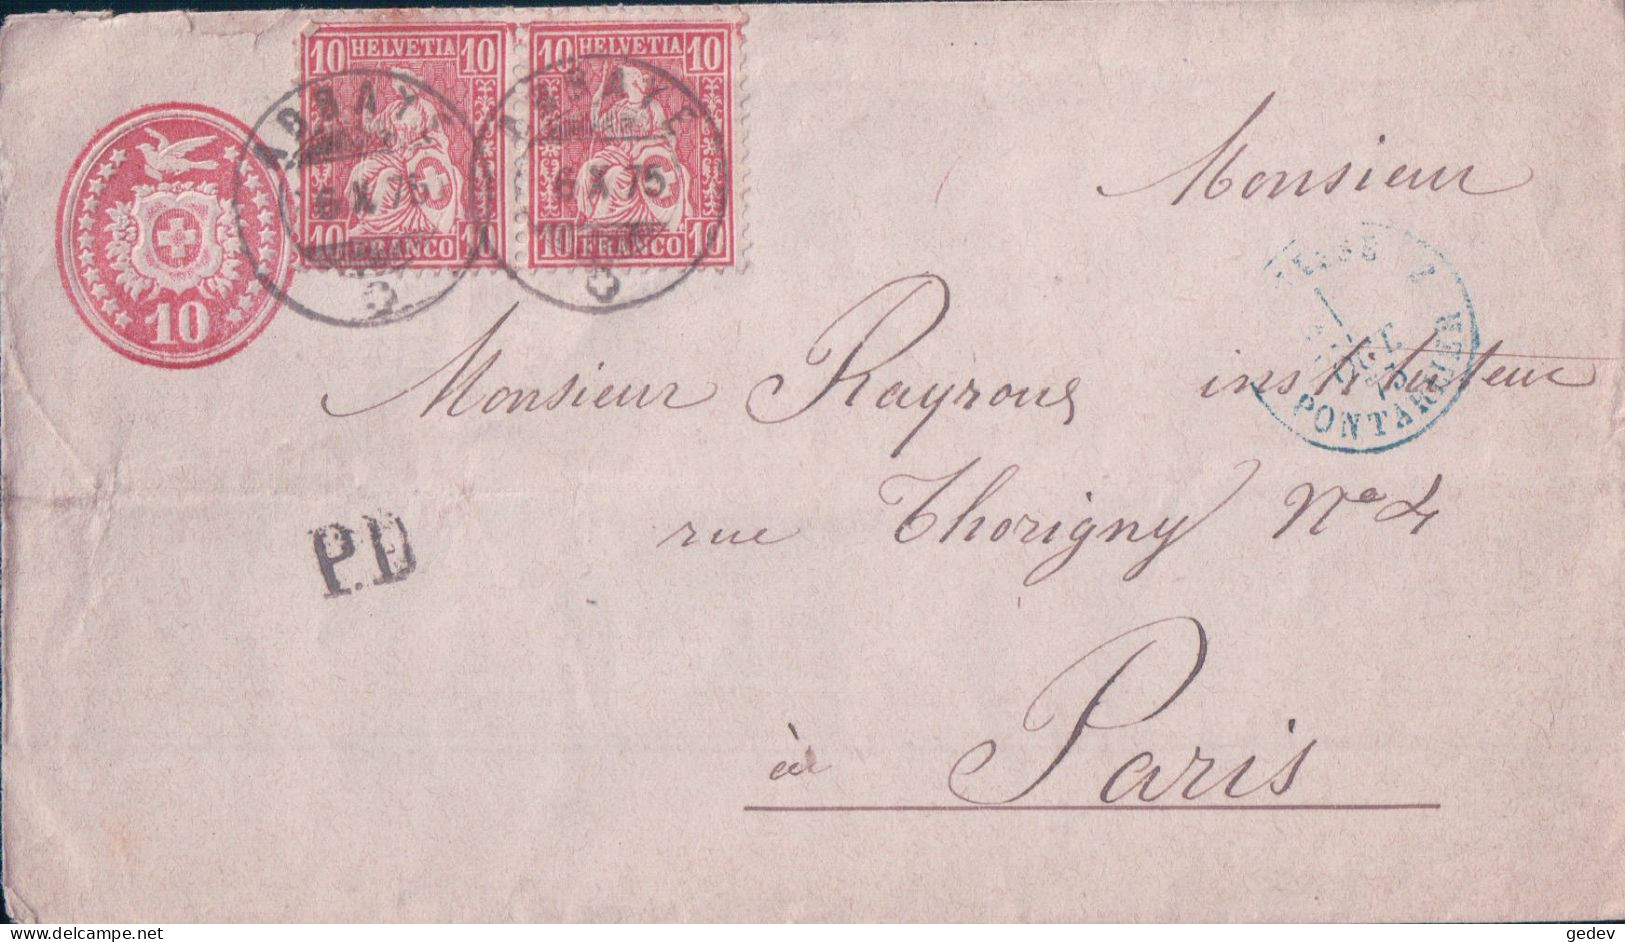 10 HELVETIA 10
10 HELVETIA 10
ABBAYE
ABBAYE
6 X 75
6 X 75
10 FRANCO 10
10 FRANCO 10
10
Monsieur
OCT
75
PONTARLIER
Monsieur Rayroux instituteur
P.D
rue Thorigny No 4
à Paris
Delcampe.net
gedev